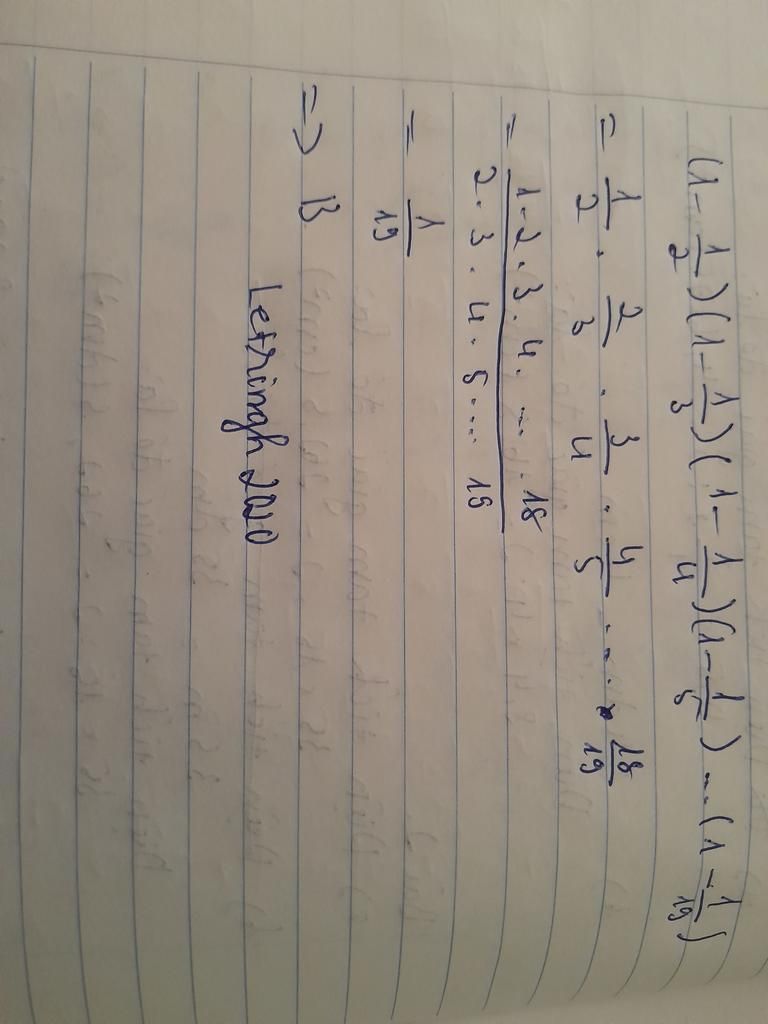 (1 - 1/2)(1 - 1/3)(1 - 1/4)(1 - 1/5) ... (1 - 1/19)
= 1/2 . 2/3 . 3/4 . 4/5 .... . 18/19
= 1.2.3.4. ... .18 / 2.3.4.5... 19
= 1/19
=> B
Letringh 2010